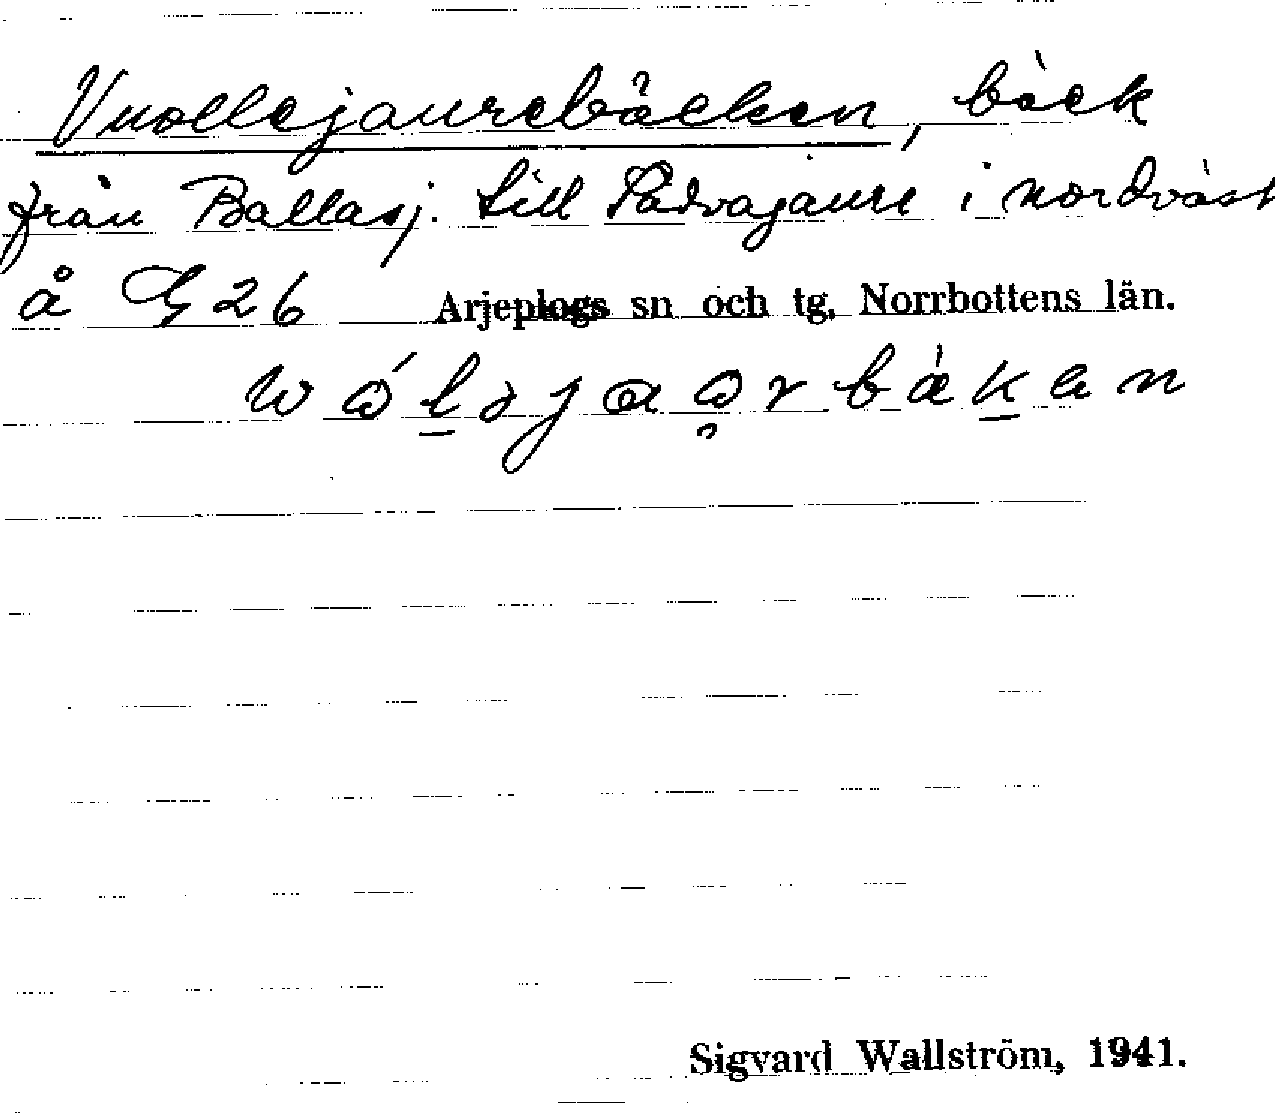 Vuollejaurebäcken, bäck
från Ballasj. till Sädvajaure i nordväst
å G 26 Arjeplogs sn och tg, Norrbottens län.
Sigvard Wallström, 1941.